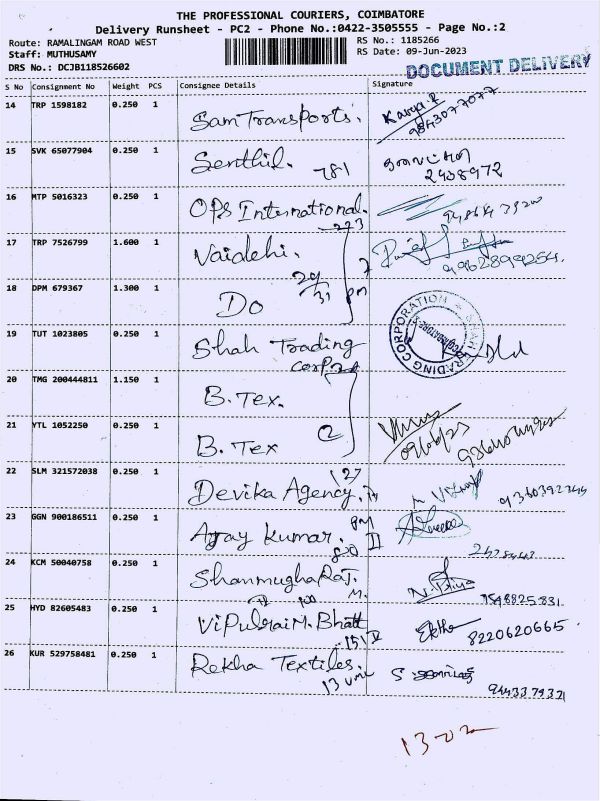 THE PROFESSIONAL COURIERS, COIMBATORE
Delivery Runsheet - PC2 - Phone No.:0422-3505555 - Page No.:2
Route: RAMALINGAM ROAD WEST
RS No.: 1185266
Staff: MUTHUSAMY
RS Date: 09-Jun-2023
DRS No.: DCJB118526602
DOCUMENT DELIVERY
S No Consignment No Weight PCS Consignee Details Signature
14 TRP 1598182 0.250 1 Sam Transports. Kavya.P
9843077077
15 SVK 65077904 0.250 1 Senthil. 781
2438972
16 MTP 5016323 0.250 1 OPS International.
223
17 TRP 7526799 1.600 1 Vaidehi.
29/31 pm
18 DPM 679367 1.300 1 Do
19 TUT 1023805 0.250 1 Shah Trading
Corp
SHAH TRADING CORPORATION
COIMBATORE
20 TMG 200444811 1.150 1 B. Tex.
21 YTL 1052250 0.250 1 B. Tex
2
09/06/23
22 SLM 321572038 0.250 1 Devika Agency.
127
23 GGN 900186511 0.250 1 Ajay Kumar.
24 KCM 50040758 0.250 1 Shanmugha Raj.
M.
25 HYD 82605483 0.250 1 Vipulrai M. Bhatt Ektha
8220620665
151
26 KUR 529758481 0.250 1 Rekha Textiles.
13
13-02